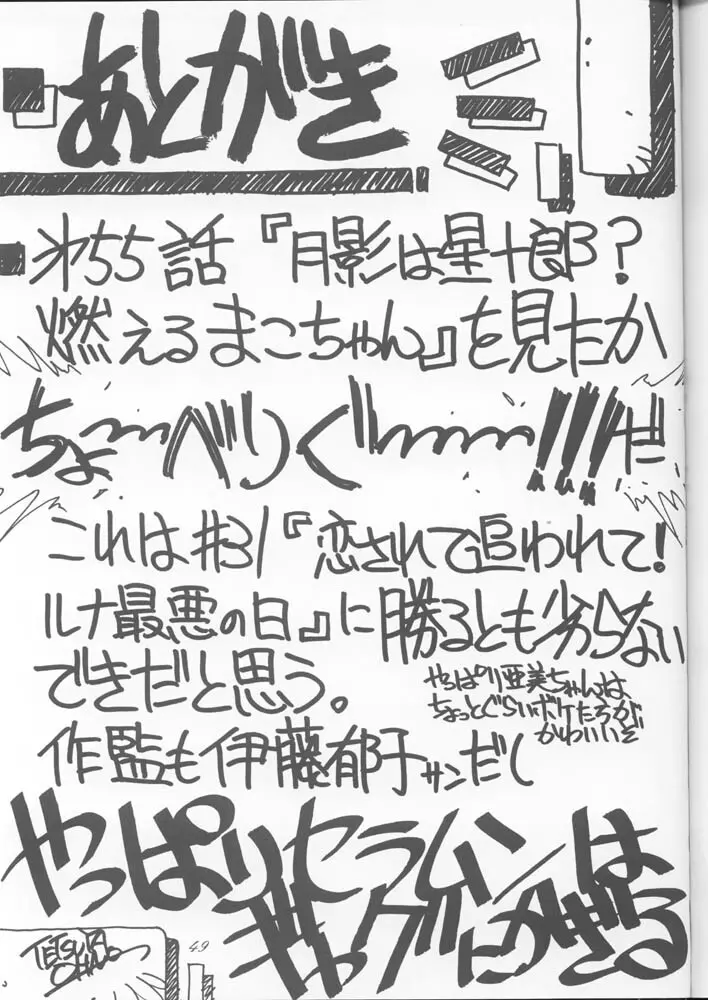 あとがき
第55話『月影は星十郎？
燃えるまこちゃん』を見たか
ちょ〜〜べりぐ〜〜〜!!!だ
これは#31『恋されて追われて！
ルナ最悪の日』に勝るとも劣らない
できだと思う。
やっぱり亜美ちゃんは
ちょっとぐらいボケたろが
かわいいぞ
作監も伊藤郁子サンだし
やっぱりセラムンは
ギャグにかぎる
49